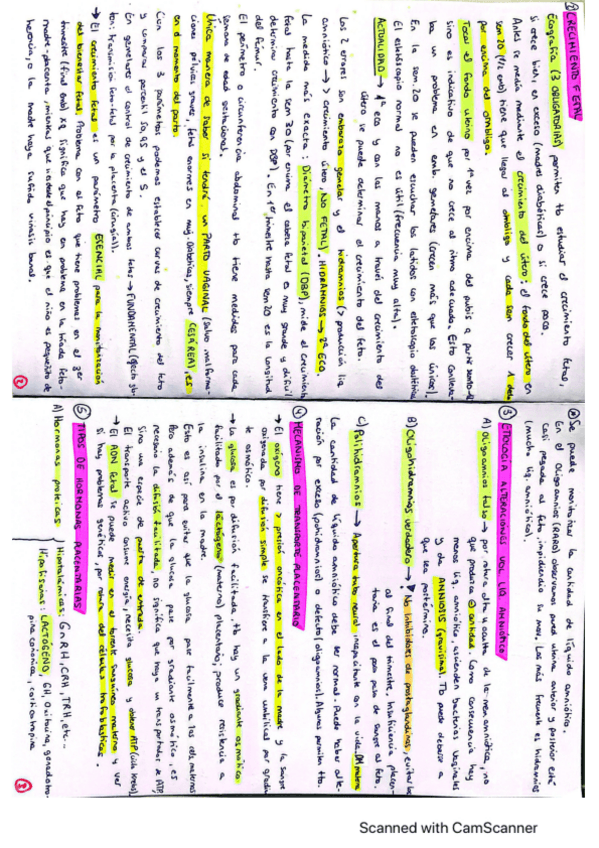 2) CRECIMIENTO FETAL
Ecografía (3 OBLIGATORIAS) permiten tb estudiar el crecimiento fetal,
si crece bien, en exceso (madres diabéticas) o si crece poco.
Antes se medía mediante el crecimiento del útero: el fondo del útero en
sem 20 tiene que llegar al ombligo y cada sem crecer 1 dedo
por encima del ombligo.
Tocar el fondo uterino por 1ª vez por encima del pubis a partir sem
sino es indicativo de que no crece al ritmo adecuado. Esto conlleva-
ba un problema en emb. gemelares (crecen más que los únicos).
En la sem. 20 se pueden escuchar los latidos con estetoscopio obstétrico
El estetoscopio normal no es útil (frecuencia muy alta).
ACTUALIDAD → 1ª eco y con las manos a través del crecimiento del
útero se puede determinar el crecimiento del feto.
Los 2 errores son embarazo gemelar y el hidramnios (> producción liq
amniótico → > crecimiento útero, NO FETAL). HIDRAMNIOS → 2ª ECO
La medida más exacta: Diámetro biparietal (DBP), mide el crecimiento
fetal hasta la sem 30 (por encima el cabeza fetal es muy grande y difícil
determinar crecimiento con DBP). En 1er trimestre hasta sem 20 es la longitud
del fémur.
El perímetro o circunferencia abdominal tb tiene medidas para cada
semana de edad gestacional.
Única manera de saber si tendrá un PARTO VAGINAL (salvo malforma-
ciones pélvis graves, fetos enormes en muj. diabéticas, siempre CESAREA), es
en el momento del parto.
Con los 3 parámetros podemos establecer curvas de crecimiento del feto
y comparar percentil 50, 95 y el 5.
En gemelares el control de crecimiento de ambos fetos → FUNDAMENTAL
ton: transfusión feto-fetal por la placenta (cirugía).
→ El crecimiento fetal es un parámetro ESENCIAL para la monitorización
del bienestar fetal. Problema con el feto que tiene problemas en el 3er
trimestre (final emb) xq significa que hay un problema en la tríada feto-
madre-placenta, mientras que desde el principio es que el niño es pequeñito de
herencia, o la madre haya sufrido virus
2
* Se puede monitorizar la cantidad de líquido amniótico.
En el Oligoamnios (RARO) observamos pared uterina anterior y posterior esté
casi pegada al feto, impidiendo su mov. Lo más frecuente es hidramnios
(mucho liq. amniótico).
3) ETIOLOGÍA ALTERACIONES VOL LIQ AMNIÓTICO
A) Oligoamnios falso → por rotura alta u oculta de la mem amniótica, no
que produzca ⊖ cantidad. Como consecuencia hay
menos liq. amniótico, ascienden bacterias vaginales
y da AMNIOSIS (gravísima). Tb puede deberse a
que sea postérmino.
B) Oligohidramnios verdadero → No inhibidores de prostaglandinas, evitarlos
al final del trimestre. Insuficiencia placen-
taria es el poco paso de sangre al feto.
C) Polihidramnios → Apertura tubo neural incapacitante en la vida.
La cantidad de líquido amniótico debe ser normal. Puede haber alte-
ración por exceso (polihidramnios) o defecto (oligoamnios). Algunos permiten tto.
4) MECANISMO DE TRANSPORTE PLACENTARIO
→ El oxígeno tiene > presión oncótica en el lado de la madre y la sangre
oxigenada por difusión simple se transfiere a la vena umbilical por gradien
te osmótico.
→ La glucosa es por difusión facilitada, tb hay un gradiante osmótico
facilitado por el lactógeno (materno) placentario, produce resistencia a
la insulina en la madre.
Esto es así para evitar que la glucosa pase fácilmente a las cls maternas
Pero además de que la glucosa pase por gradiante osmótico, es
necesario la difusión facilitada no significa que haya un transportador de ATP,
sino una especie de puerta de entrada.
El transporte activo consume energía, necesita glucosa y obtener ATP (ciclo krebs).
→ El ADN fetal se puede medir en el torrente sanguíneo materno y ver
si hay problemas genéticos, por rotura del células trofoblásticas.
5) TIPOS DE HORMONAS PLACENTARIAS
A) Hormonas proteicas
Hipotalámicas: GnRH, CRH, TRH, etc..
Hipofisarias: LACTÓGENO, GH, Oxitocina, gonadotro-
pina coriónica, corticotropina
3
Scanned with CamScanner